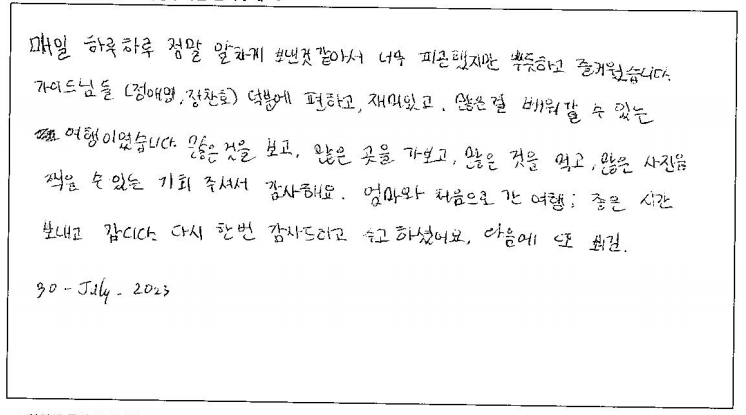 매일 하루하루 정말 알차게 보낸것 같아서 너무 피곤했지만 뿌듯하고 즐거웠습니다.
가이드님들 (정애영, 장찬호) 덕분에 편하고, 재미있고, 많은걸 배워갈 수 있는
여행이였습니다. 많은 것을 보고, 많은 곳을 가보고, 많은 것을 먹고, 많은 사진을
찍을 수 있는 기회 주셔서 감사해요. 엄마와 처음으로 간 여행; 좋은 시간
보내고 갑니다. 다시 한번 감사드리고 수고하셨어요. 다음에 또 뵈길.
30 - July - 2023